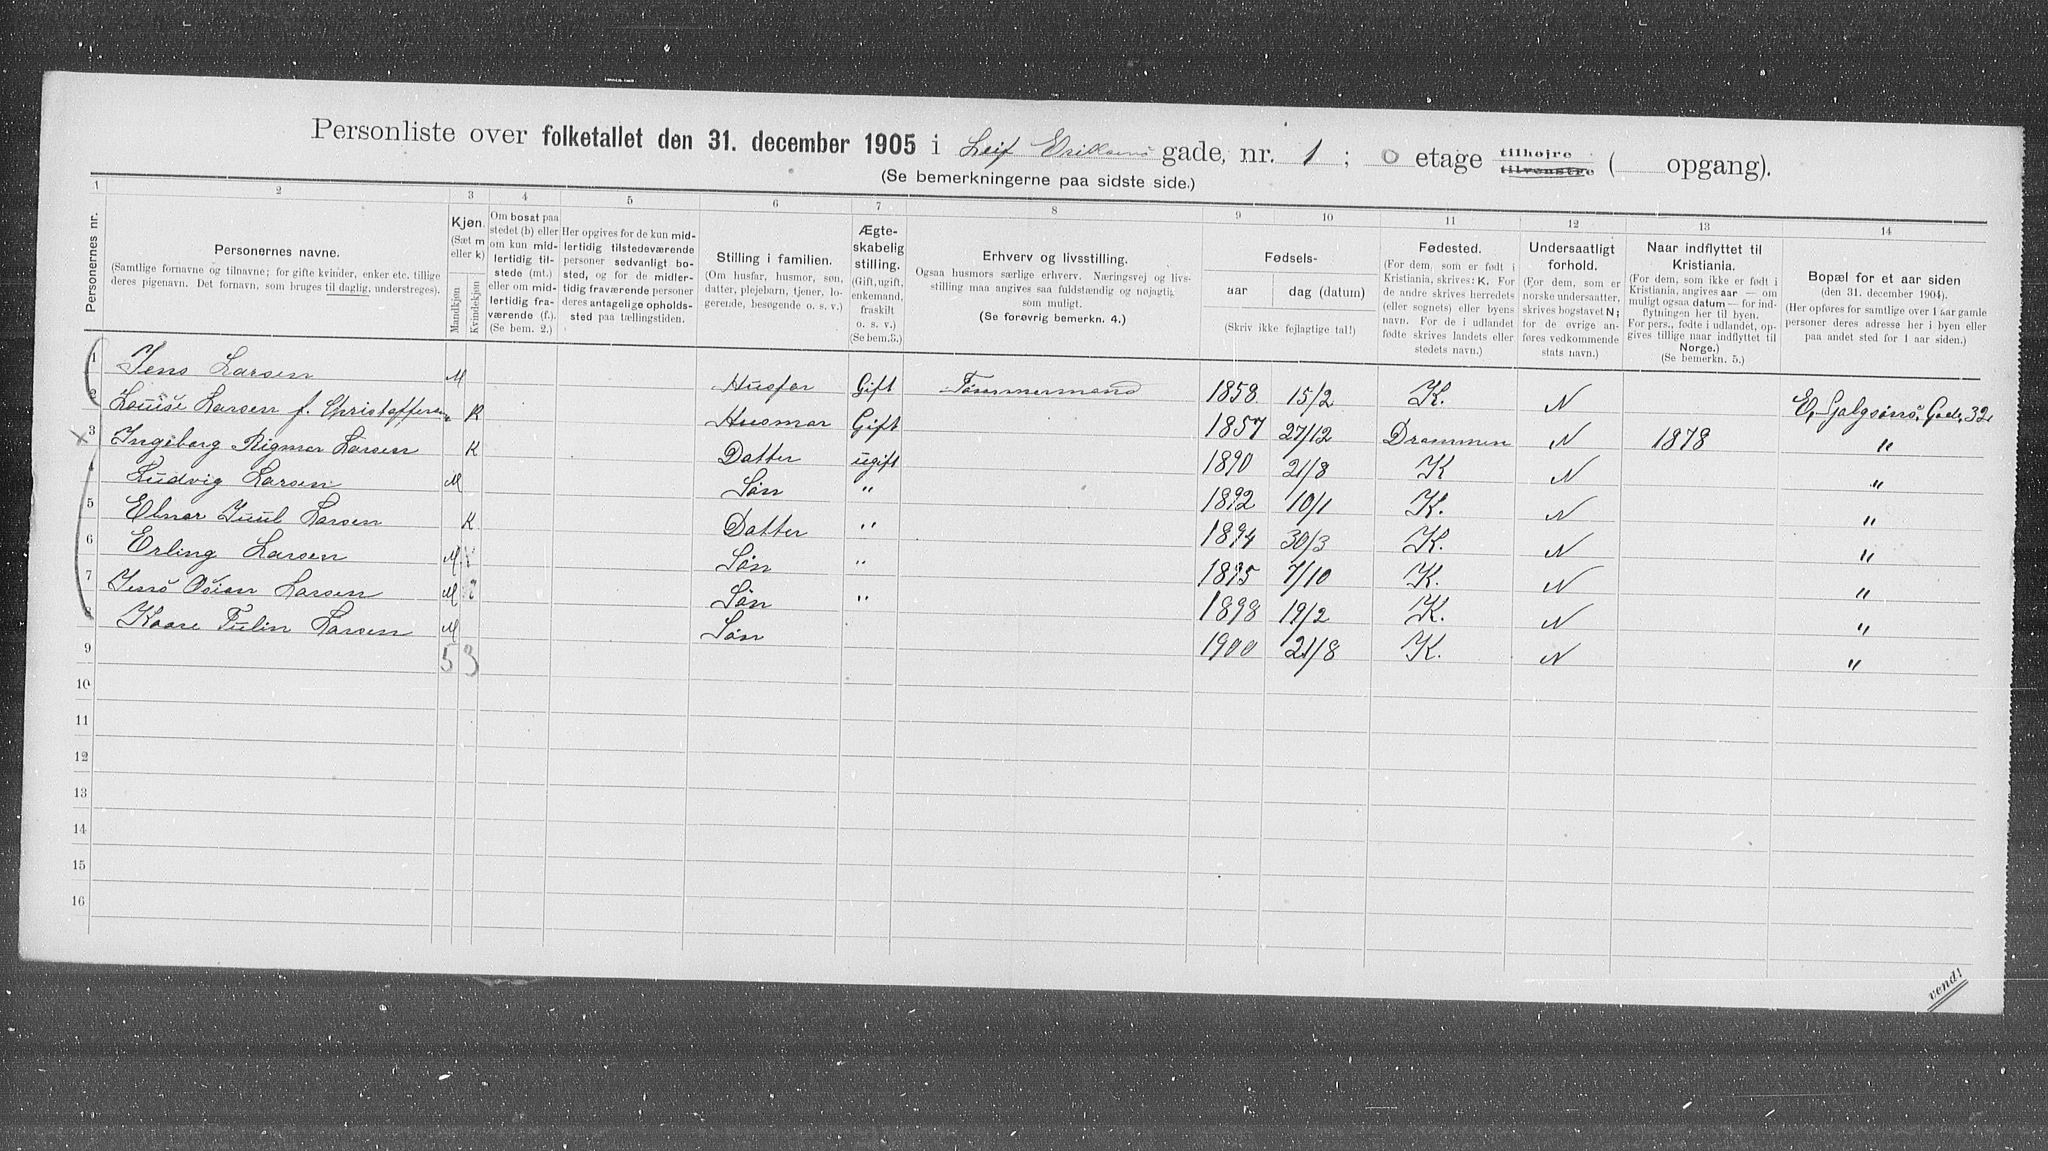 Personliste over folketallet den 31. december 1905 i Leif Eriksens gade, nr. 1 ; 0 etage tilhøjre tilvenstre ( opgang).
(Se bemerkningerne paa sidste side.)
1 2 3 4 5 6 7 8 9 10 11 12 13 14
Personernes nr.
Personernes navne.
(Samtlige fornavne og tilnavne; for gifte kvinder, enker etc. tillige
deres pigenavn. Det fornavn, som bruges til daglig, understreges).
Kjøn.
(Sæt m
eller k)
Mandkjøn
Kvindekjøn
Om bosat paa
stedet (b) eller
om kun mid-
lertidig til-
stede (mt.)
eller om mid-
lertidig fra-
værende (f.).
(Se bem. 2.)
Her opgives for de kun mid-
lertidig tilstedeværende
personer sedvanligt bo-
sted, og for de midler-
tidig fraværende personer
deres antagelige opholds-
sted paa tællingstiden.
Stilling i familien.
(Om husfar, husmor, søn,
datter, plejebarn, tjener, lo-
gerende, besøgende o. s. v.)
Ægte-
skabelig
stilling.
(Gift, ugift,
enkemand,
fraskilt
o. s. v.)
(Se bem. 3.)
Erhverv og livsstilling.
Ogsaa husmors særlige erhverv. Næringsvej og livs-
stilling maa angives saa fuldstændig og nøjagtig
som muligt.
(Se forøvrig bemerkn. 4.)
Fødsels-
aar dag (datum)
(Skriv ikke fejlagtige tal!)
Fødested.
(For dem, som er født i
Kristiania, skrives: K. For
de andre skrives herredets
(eller sognets) eller byens
navn. For de i udlandet
fødte skrives landets eller
stedets navn.)
Undersaatligt
forhold.
(For dem, som er
norske undersaatter,
skrives bogstavet N;
for de øvrige an-
føres vedkommende
stats navn.)
Naar indflyttet til
Kristiania.
(For dem, som ikke er født i
Kristiania, angives aar — om
muligt ogsaa datum — for ind-
flytningen her til byen.
For pers., fødte i udlandet, op-
gives tillige naar indflyttet til
Norge.)
(Se bemerkn. 5.)
Bopæl for et aar siden
(den 31. december 1904).
(Her opføres for samtlige over 1 aar gamle
personer deres adresse her i byen eller
paa andet sted for 1 aar siden.)
1 Jens Larsen M Husfar Gift Tømmermand 1858 15/2 K. N 32
2 Louise Larsen f. Christoffersen K Husmor Gift 1857 27/12 Drammen N 1878 "
x 3 Ingeborg Rigmor Larsen K Datter ugift 1890 21/8 K N "
4 Ludvig Larsen M Søn " 1892 10/1 K. N "
5 Larsen K Datter " 1894 30/3 K. N "
6 Erling Larsen M Søn " 1895 7/10 K. N "
7 Jens Osian Larsen M Søn " 1898 19/2 K. N "
8 Kaare Tulin Larsen M Søn 1900 21/8 K. N "
9 5 3
10
11
12
13
14
15
16
vend!